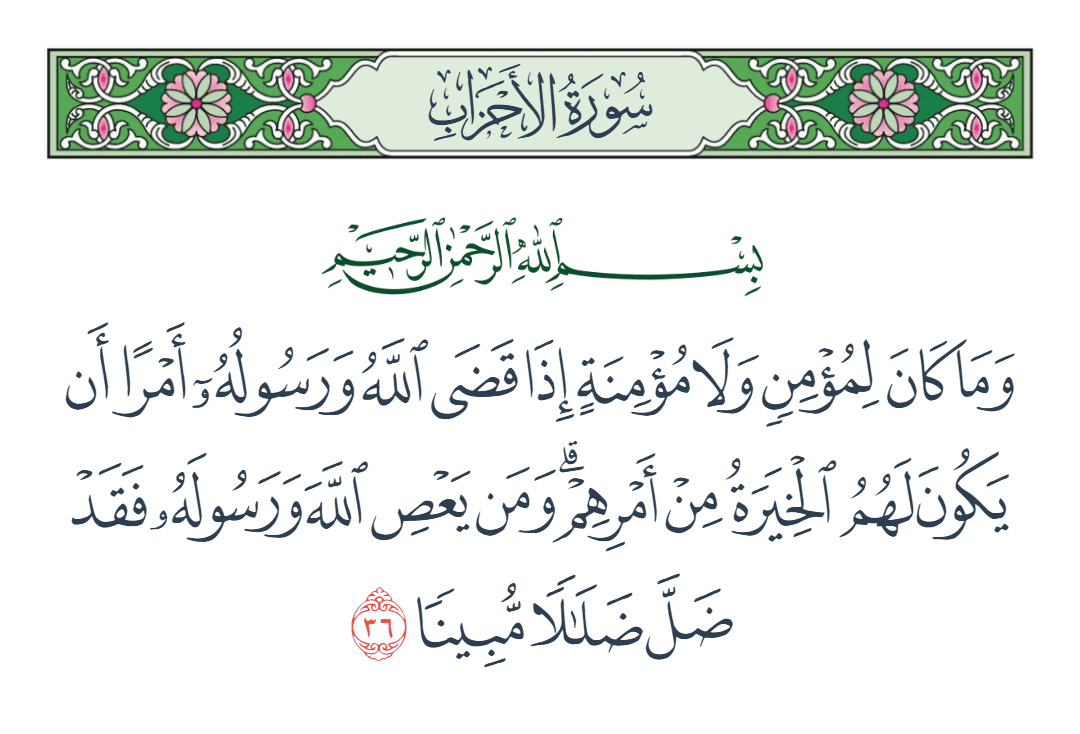 سُورَةُ الأَحْزَابِ
بِسْمِ ٱللَّهِ ٱلرَّحْمَٰنِ ٱلرَّحِيمِ
وَمَا كَانَ لِمُؤْمِنٍ وَلَا مُؤْمِنَةٍ إِذَا قَضَى ٱللَّهُ وَرَسُولُهُۥٓ أَمْرًا أَن
يَكُونَ لَهُمُ ٱلْخِيَرَةُ مِنْ أَمْرِهِمْ ۗ وَمَن يَعْصِ ٱللَّهَ وَرَسُولَهُۥ فَقَدْ
ضَلَّ ضَلَٰلًا مُّبِينًا ٣٦